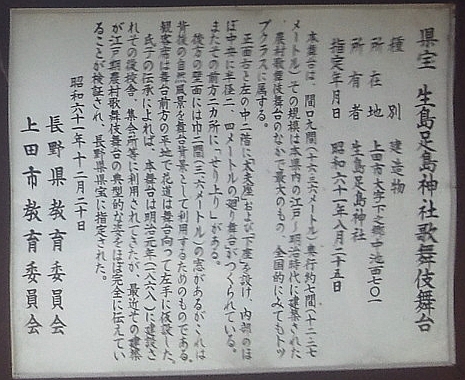 県宝 生島足島神社歌舞伎舞台
種別 建造物
所在地 上田市大字下之郷中池西七〇一
所有者 生島足島神社
指定年月日 昭和六十一年八月二十五日
本舞台は、間口九間(十六・三六メートル)奥行約七間(十二・二七
メートル)でその規模は本県内の江戸〜明治時代に建築された
農村歌舞伎舞台のなかで最大のもの、全国的にみてもトッ
プクラスに属する。
正面右と左の中二階に"太夫座"および"下座"を設け、内部のほ
ぼ中央に半径二、四メートルの廻り舞台がつくられている。
またその前方二カ所に"せり上り"がある。
後方の壁面には巾二間(三・六メートル)の窓があるがこれは
背後の自然風景を舞台背景として利用するためのものである。
観客席は舞台前方の平地で花道は舞台向って左手に仮設した。
氏子の伝承によれば、本舞台は明治元年(一八六八)に建設さ
れての後校舎、集会所等に利用されてきたが、最近その建築
が江戸期農村歌舞伎舞台の典型的な姿をほぼ完全に伝えてい
ることが検証され、長野県県宝に指定された。
昭和六十一年十二月二十日
長野県教育委員会
上田市教育委員会